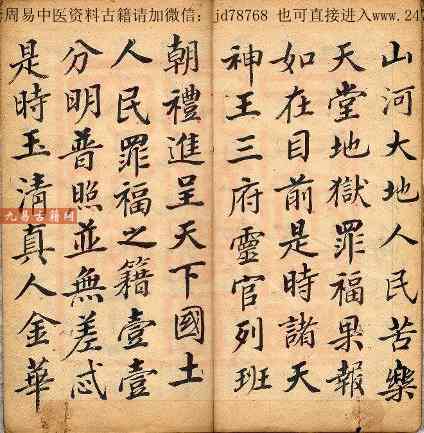 周易中医资料古籍请加微信：jd78768 也可直接进入www.247
山河大地人民苦樂
天堂地獄罪福果報
如在目前是時諸天
神王三府靈官列班
朝禮進呈天下國土
人民罪福之籍壹壹
分明普照並無差忒
是時玉清真人金華
九易古籍网